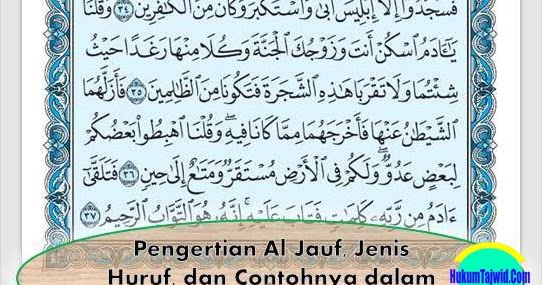 فَسَجَدُوٓا۟ إِلَّآ إِبْلِيسَ أَبَىٰ وَٱسْتَكْبَرَ وَكَانَ مِنَ ٱلْكَٰفِرِينَ ٣٤ وَقُلْنَا
يَٰٓـَٔادَمُ ٱسْكُنْ أَنتَ وَزَوْجُكَ ٱلْجَنَّةَ وَكُلَا مِنْهَا رَغَدًا حَيْثُ
شِئْتُمَا وَلَا تَقْرَبَا هَٰذِهِ ٱلشَّجَرَةَ فَتَكُونَا مِنَ ٱلظَّٰلِمِينَ ٣٥ فَأَزَلَّهُمَا
ٱلشَّيْطَٰنُ عَنْهَا فَأَخْرَجَهُمَا مِمَّا كَانَا فِيهِ ۖ وَقُلْنَا ٱهْبِطُوا۟ بَعْضُكُمْ
لِبَعْضٍ عَدُوٌّ ۖ وَلَكُمْ فِى ٱلْأَرْضِ مُسْتَقَرٌّ وَمَتَٰعٌ إِلَىٰ حِينٍ ٣٦ فَتَلَقَّىٰٓ
ءَادَمُ مِن رَّبِّهِۦ كَلِمَٰتٍ فَتَابَ عَلَيْهِ ۚ إِنَّهُۥ هُوَ ٱلتَّوَّابُ ٱلرَّحِيمُ ٣٧
Pengertian Al Jauf, Jenis
Huruf, dan Contohnya dalam
HukumTajwid.Com